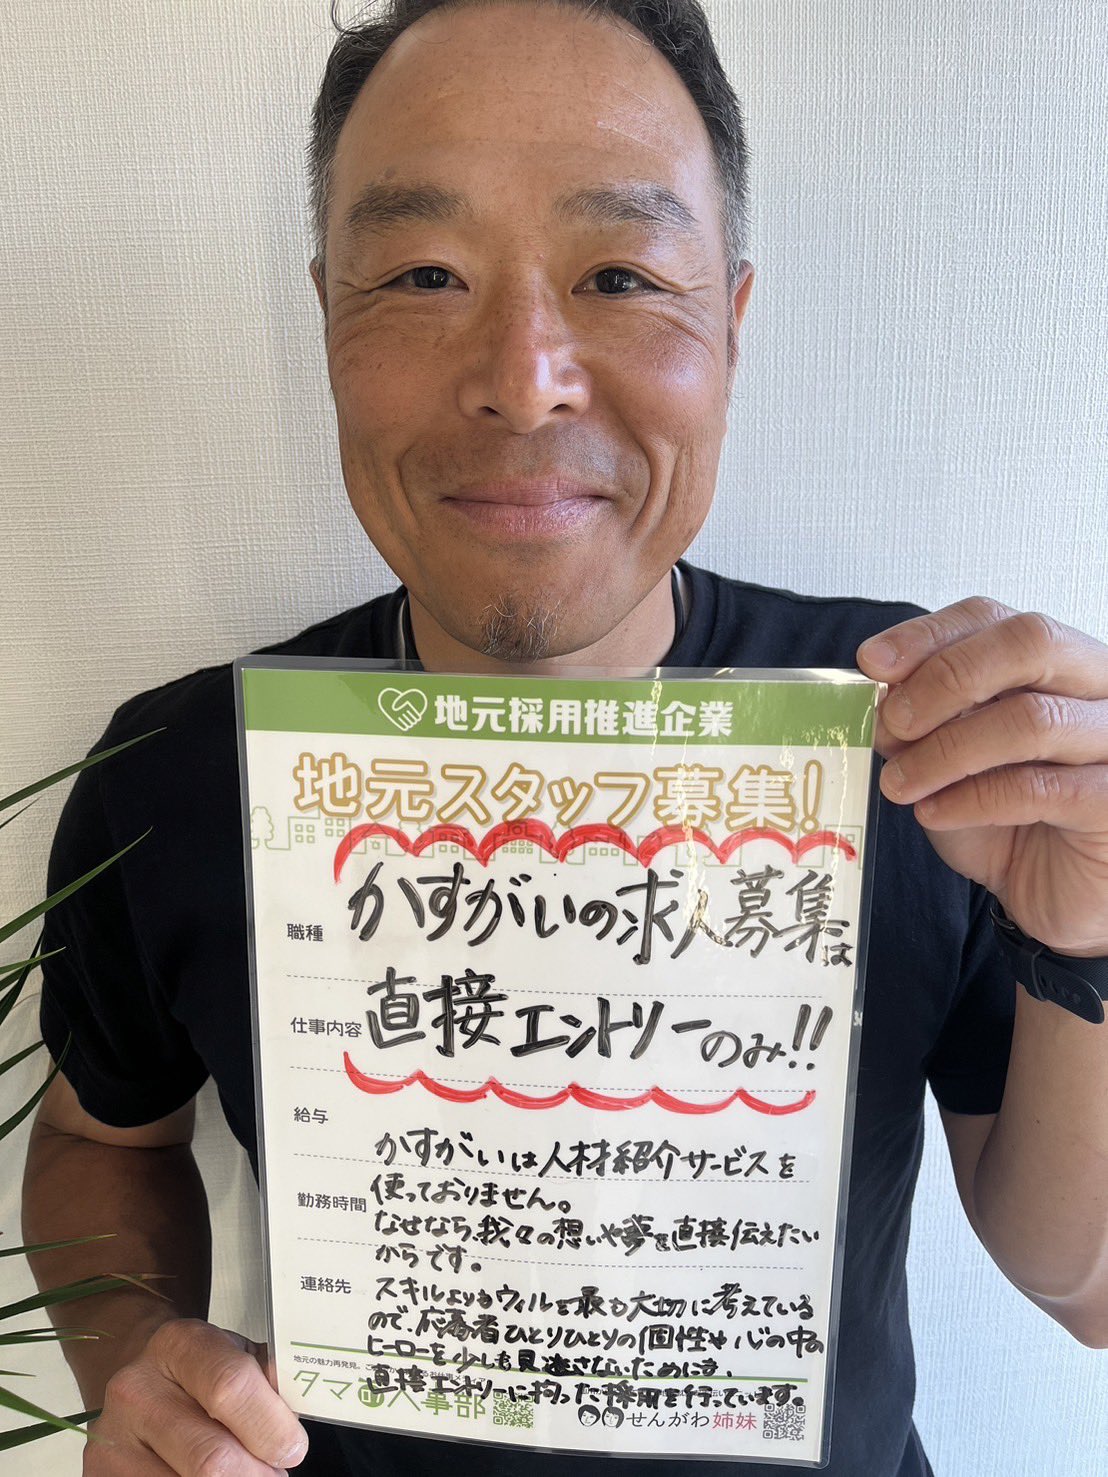 地元採用推進企業
地元スタッフ募集!
職種 かすがいの求人募集は
仕事内容 直接エントリーのみ!!
給与
かすがいは人材紹介サービスを
勤務時間 使っておりません。
なぜなら、我々の想いや夢を直接伝えたい
からです。
連絡先 スキルよりもウィルを最も大切に考えている
ので、応募者ひとりひとりの個性や心の中の
ヒーローを少しも見逃さないためにも、
地元の魅力再発見。
直接エントリーに拘った採用を行っています。
タマ市人事部 せんがわ姉妹